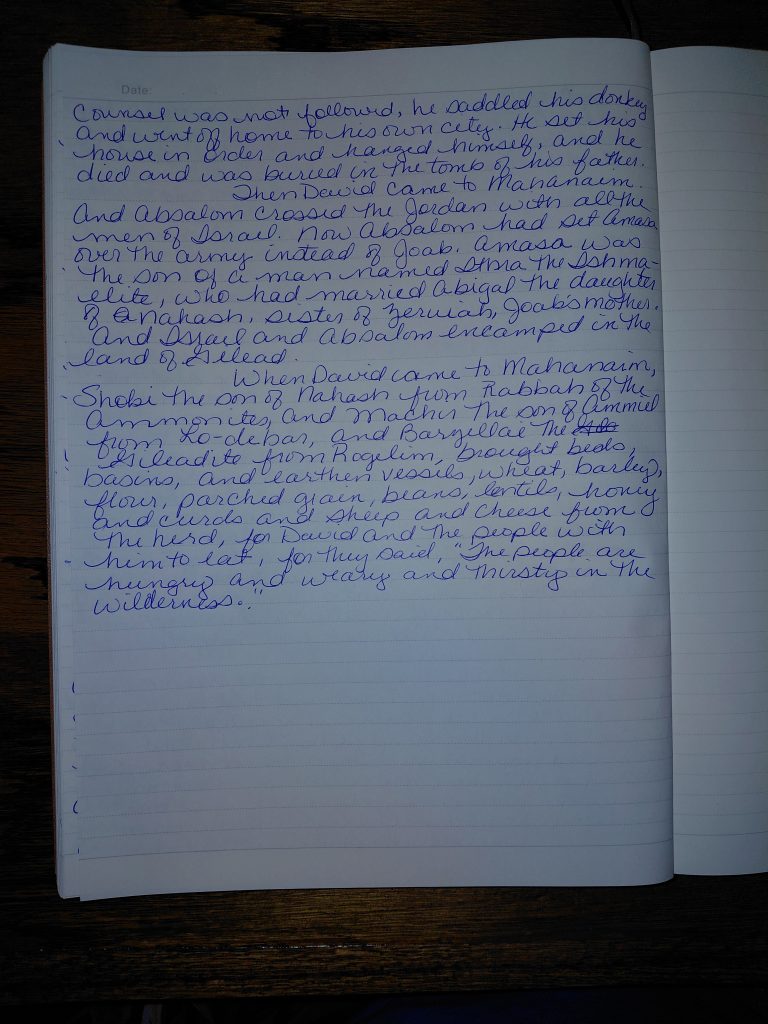 Date:
Counsel was not followed, he saddled his donkey
and went off home to his own city. He set his
house in order and hanged himself, and he
died and was buried in the tomb of his father.
Then David came to Mahanaim.
And Absalom crossed the Jordan with all the
men of Israel. Now Absalom had set Amasa
over the army instead of Joab. Amasa was
the son of a man named Ithra the Ishma-
elite, who had married Abigal the daughter
of Nahash, sister of Zeruiah, Joab's mother.
And Israel and Absalom encamped in the
land of Gilead.
When David came to Mahanaim,
Shobi the son of Nahash from Rabbah of the
Ammonites, and Machir the son of Ammiel
from Lo-debar, and Barzillai the
Gileadite from Rogelim, brought beds,
basins, and earthen vessels, wheat, barley,
flour, parched grain, beans, lentils, honey
and curds and sheep and cheese from
the herd, for David and the people with
him to eat, for they said, "The people are
hungry and weary and thirsty in the
wilderness."